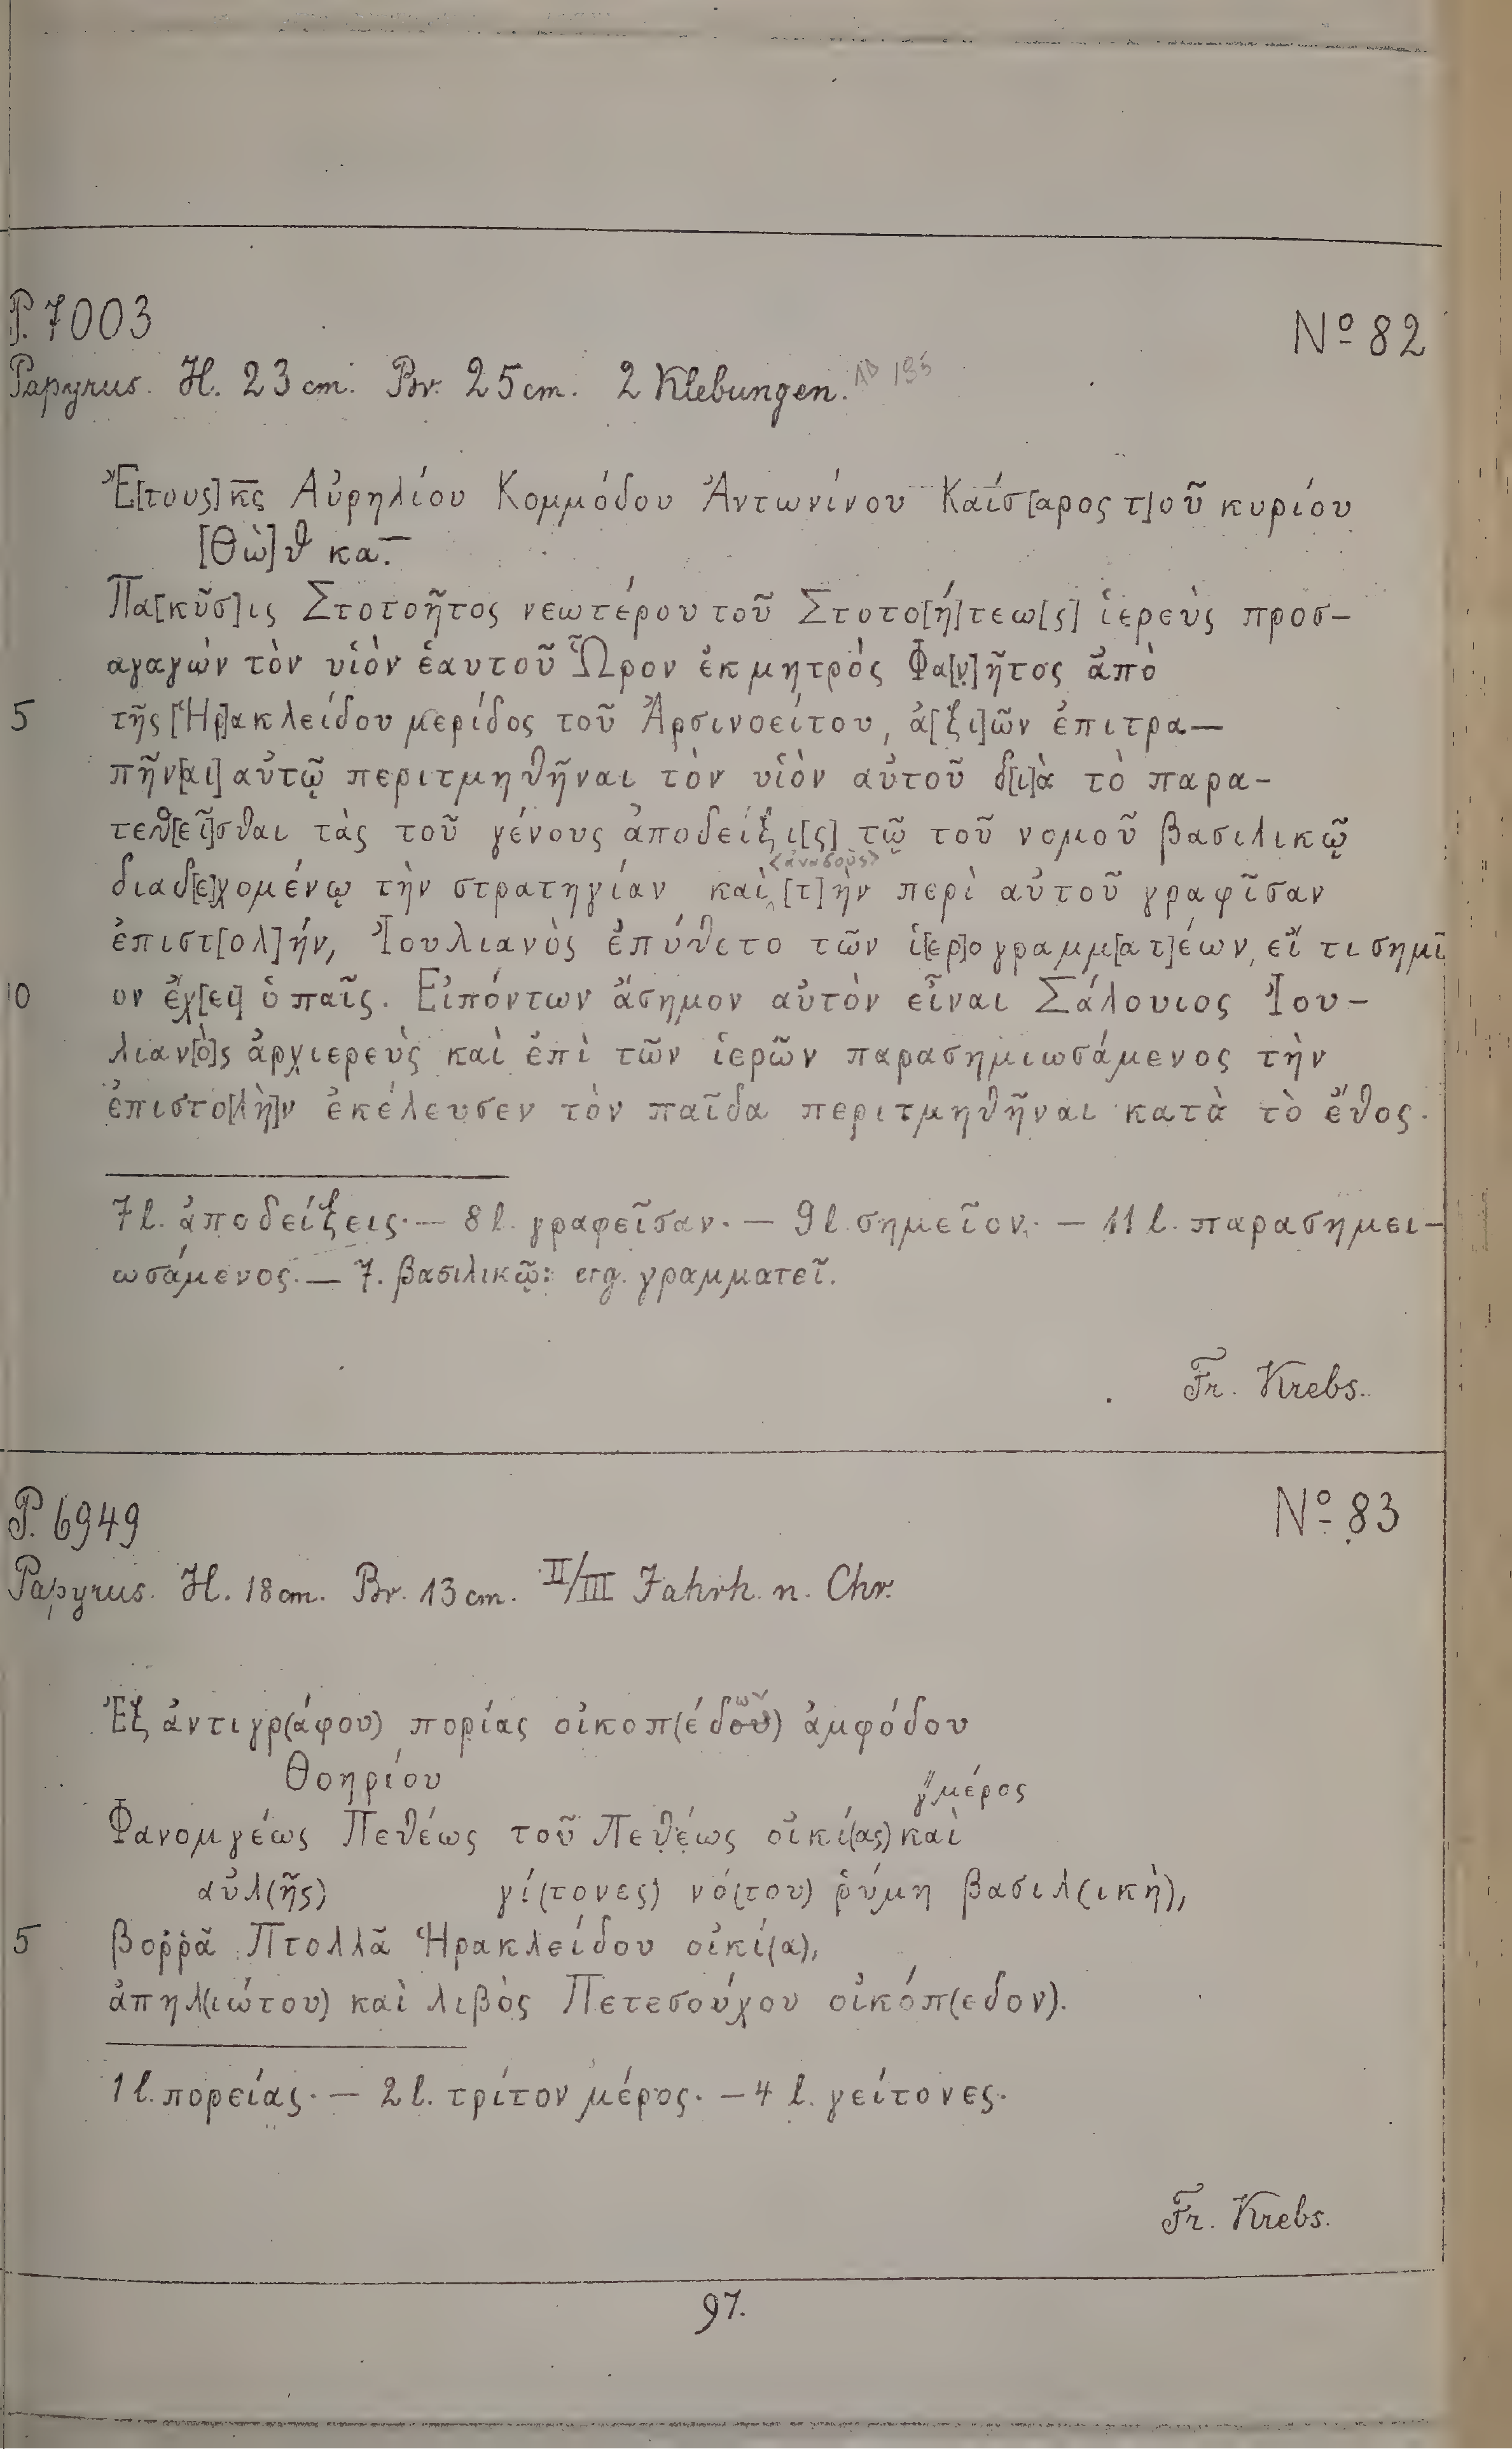 P. 7003
Nº 82
Papyrus. H. 23 cm. Br. 25 cm. 2 Klebungen. AD 185
Ἔ[τους] κ̅ς̅ Αὐρηλίου Κομμόδου Ἀντωνίνου Καίσ[αρος τ]οῦ κυρίου
[Θὼ]θ κα̅.
Πα[κῦσ]ις Στοτοῆτος νεωτέρου τοῦ Στοτο[ή]τεω[ς] ἱερεὺς προσ-
αγαγὼν τὸν υἱὸν ἑαυτοῦ Ὧρον ἐκ μητρὸς Φα[ν]ῆτος ἀπὸ
5 τῆς [Ἡρ]ακλείδου μερίδος τοῦ Ἀρσινοείτου, ἀ[ξι]ῶν ἐπιτρα-
πῆν[αι] αὐτῷ περιτμηθῆναι τὸν υἱὸν αὐτοῦ δ[ι]ὰ τὸ παρα-
τεθ[εῖ]σθαι τὰς τοῦ γένους ἀποδείξι[ς] τῷ τοῦ νομοῦ βασιλικῷ
<ἀναδοὺς>
διαδ[ε]χομένῳ τὴν στρατηγίαν καὶ [τ]ὴν περὶ αὐτοῦ γραφῖσαν
ἐπιστ[ολ]ήν, Ἰουλιανὸς ἐπύθετο τῶν ἱ[ερ]ογραμμ[ατ]έων, εἴ τι σημῖ
10 ον ἔχ[ει] ὁ παῖς. Εἰπόντων ἄσημον αὐτὸν εἶναι Σάλουιος Ἰου-
λιαν[ὸ]ς ἀρχιερεὺς καὶ ἐπὶ τῶν ἱερῶν παρασημιωσάμενος τὴν
ἐπιστο[λὴ]ν ἐκέλευσεν τὸν παῖδα περιτμηθῆναι κατὰ τὸ ἔθος.
7 l. ἀποδείξεις. — 8 l. γραφεῖσαν. — 9 l. σημεῖον. — 11 l. παρασημει-
ωσάμενος. — 7. βασιλικῷ: erg. γραμματεῖ.
Fr. Krebs.
P. 6949
Nº 83
Papyrus. H. 18 cm. Br. 13 cm. II/III Jahrh. n. Chr.
Ἐξ ἀντιγρ(άφου) πορίας οἰκοπ(έδου) ἀμφόδου
Θοηρίου
γ´´ μέρος
Φανομγέως Πεθέως τοῦ Πεθέως οἰκί(ας) καὶ
αὐλ(ῆς) γί(τονες) νό(του) ῥύμη βασιλ(ικὴ),
5 βοῤῥᾶ Πτολλᾶ Ἡρακλείδου οἰκί(α),
ἀπηλ(ιώτου) καὶ λιβὸς Πετεσούχου οἰκόπ(εδον).
1 l. πορείας. — 2 l. τρίτον μέρος. — 4 l. γείτονες.
Fr. Krebs.
97.